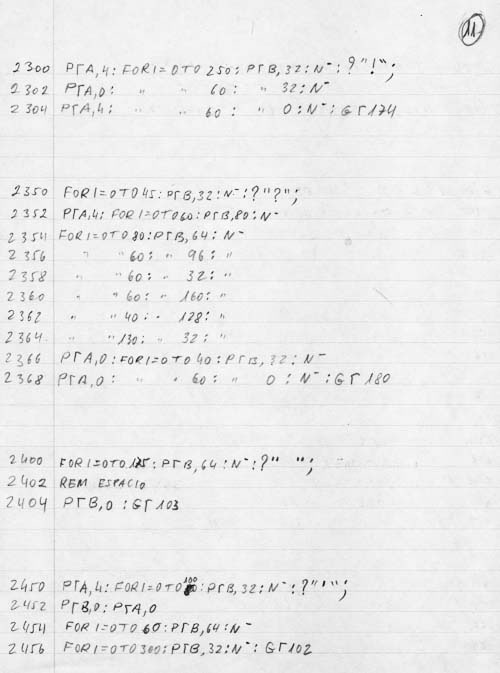 11
2300 PΓA,4: FOR I=0TO 250: PΓB,32: N⁻: ?"!";
2302 PΓA,0: " " 60: " 32: N⁻
2304 PΓA,4: " " 60: " 0: N⁻: GΓ174
2350 FOR I=0TO45: PΓB,32: N⁻: ?"?";
2352 PΓA,4: FOR I=0TO60: PΓB,80: N⁻
2354 FOR I=0TO80: PΓB,64: N⁻
2356 " " 60: " 96: "
2358 " " 60: " 32: "
2360 " " 60: " 160: "
2362 " " 40: " 128: "
2364 " " 130: " 32: "
2366 PΓA,0: FOR I=0TO40: PΓB,32: N⁻
2368 PΓA,0: " " 60: " 0: N⁻: GΓ180
2400 FOR I=0TO175: PΓB,64: N⁻: ?" ";
2402 REM ESPACIO
2404 PΓB,0: GΓ103
2450 PΓA,4: FOR I=0TO100: PΓB,32: N⁻: ?"'";
2452 PΓB,0: PΓA,0
2454 FOR I=0TO60: PΓB,64: N⁻
2456 FOR I=0TO300: PΓB,32: N⁻: GΓ102